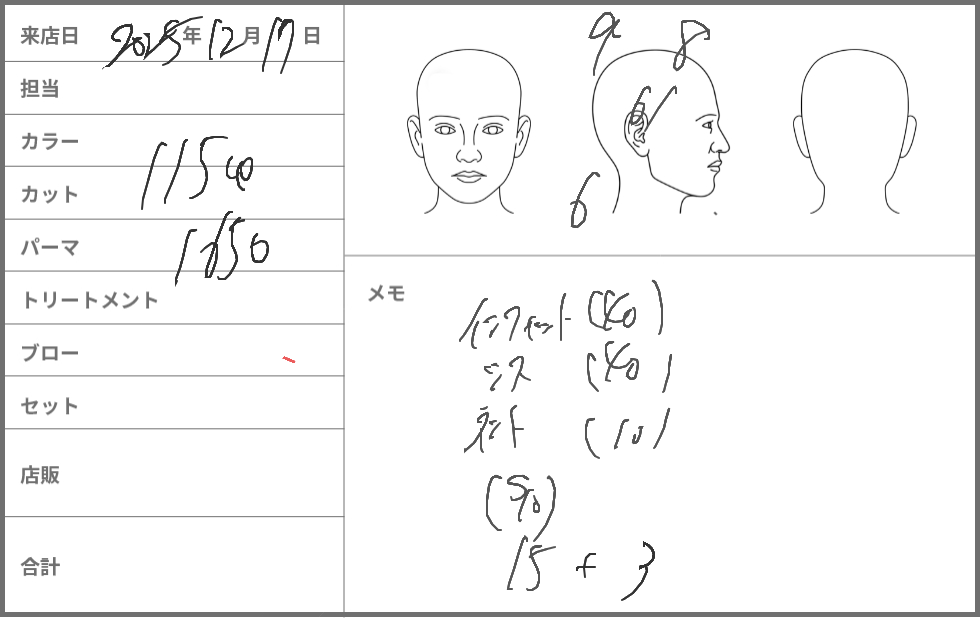 来店日 2025年12月17日
担当
カラー
カット 11540
パーマ 1650
トリートメント
ブロー
セット
店販
合計
9 8
6
6
メモ
(40)
シス (40)
(10)
(90)
15 + 3